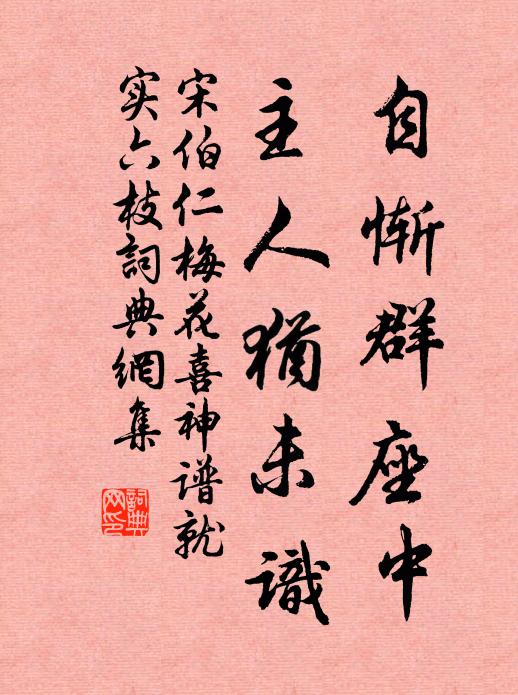 自惭群座中
主人猶未識
宋伯仁梅花喜神谱就
实六枝詞典網集
詞典
网印